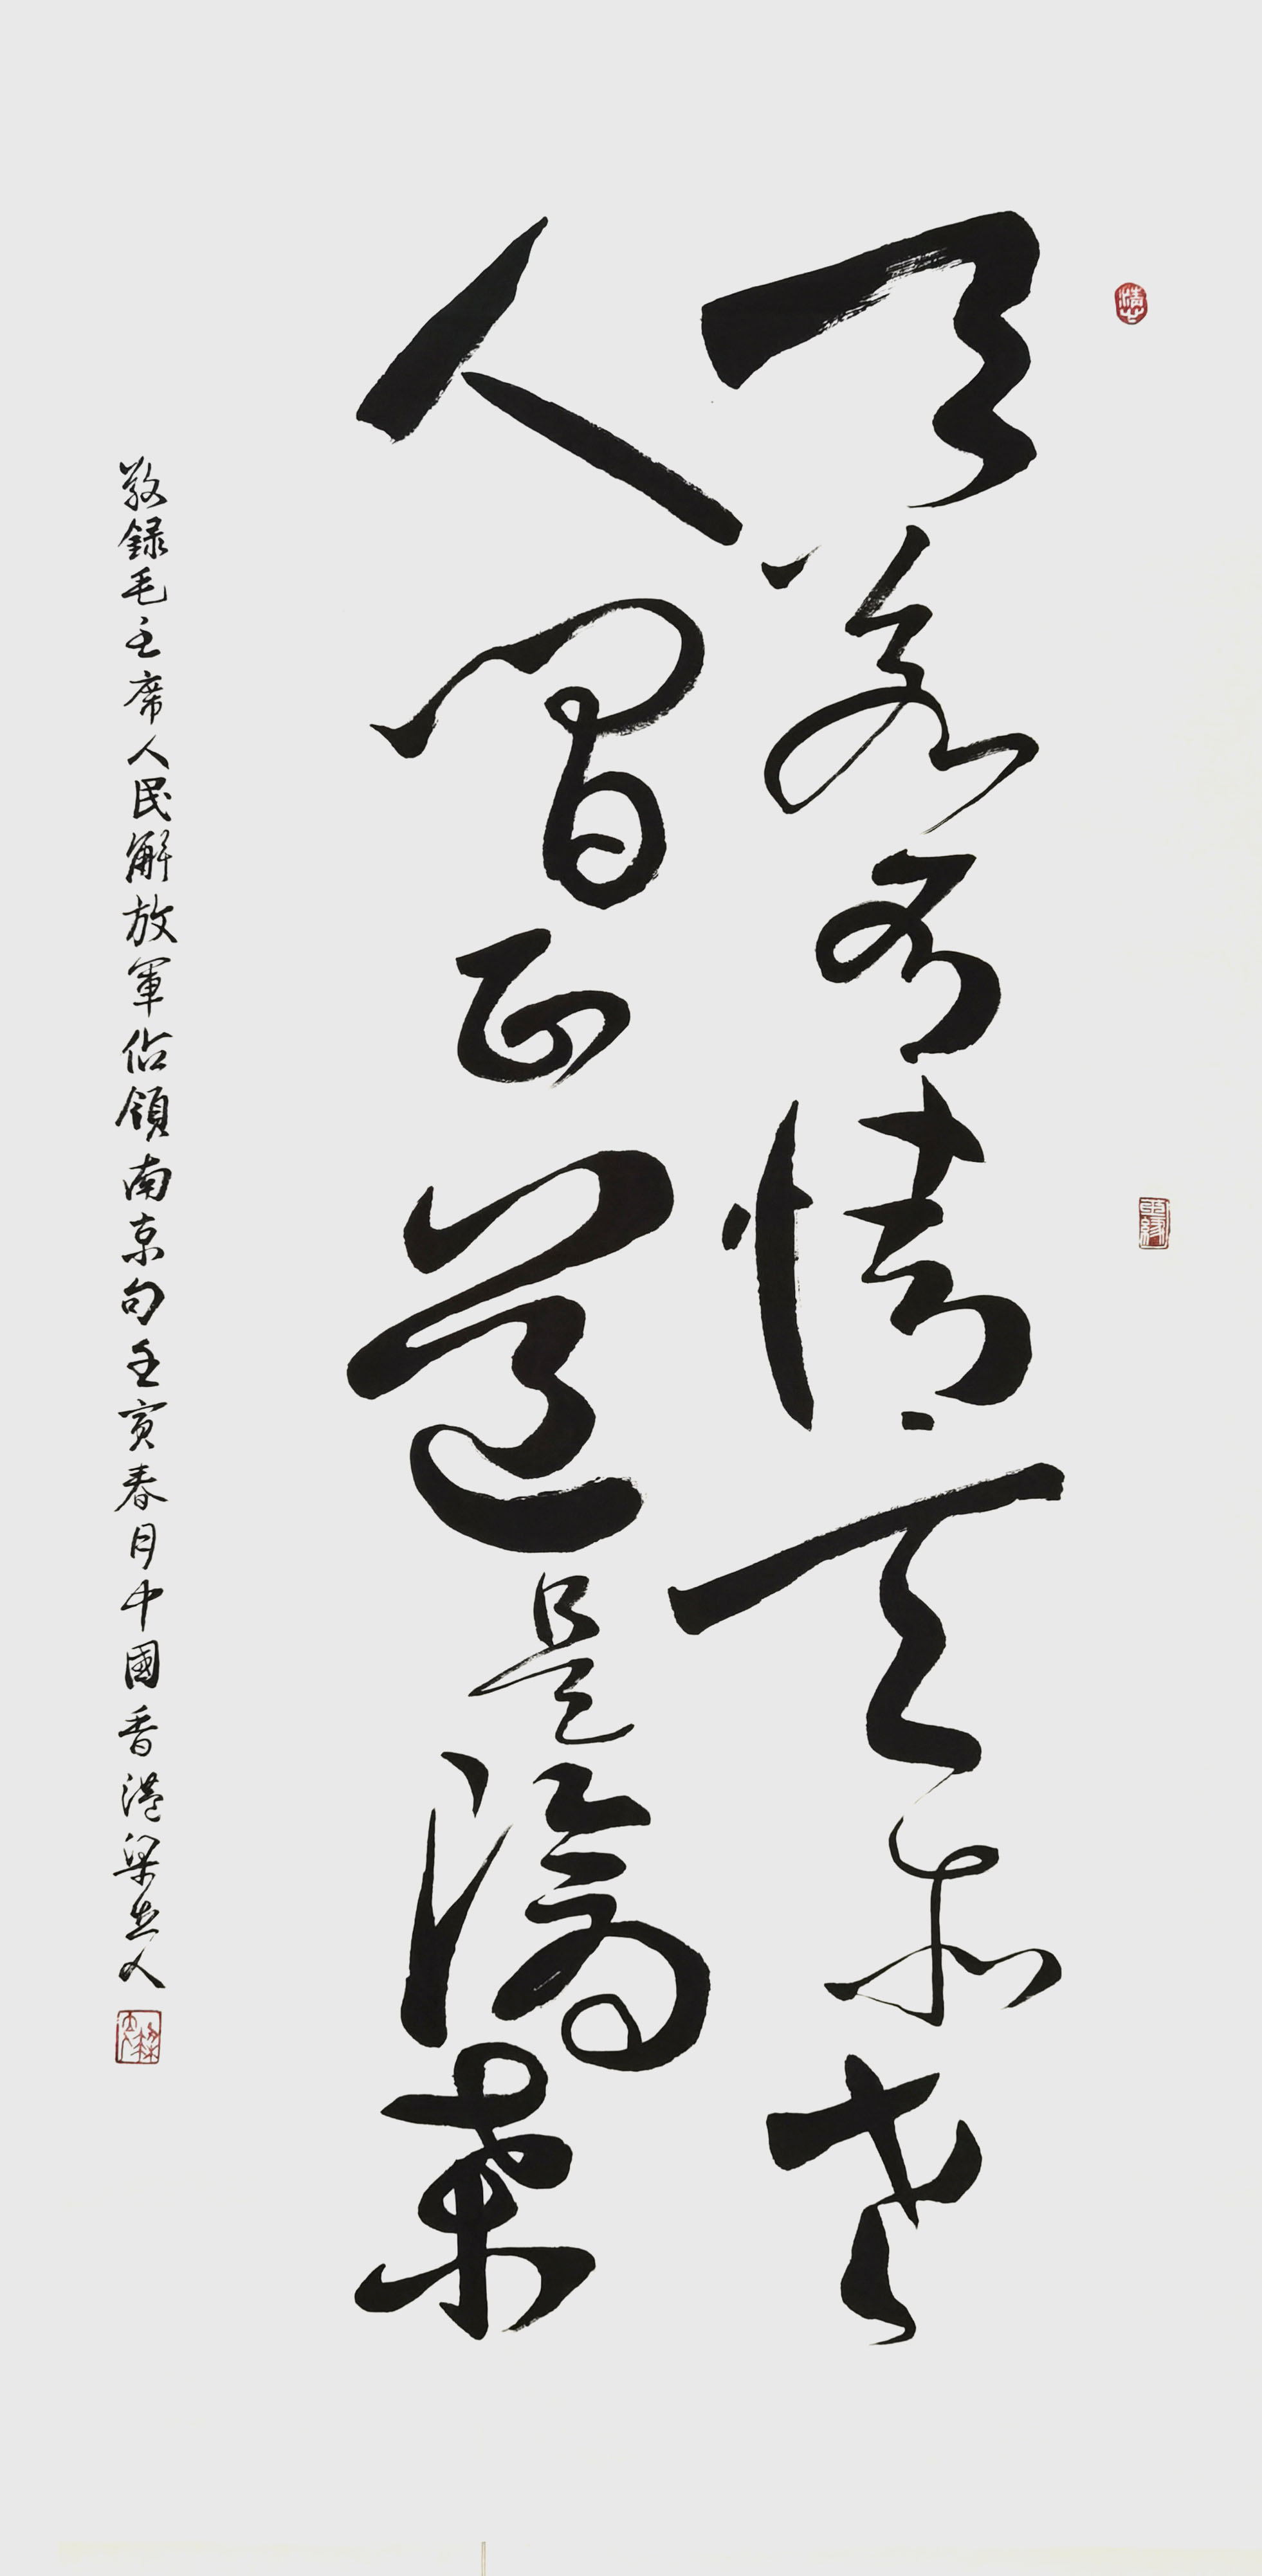 天若有情天亦老
人間正道是滄桑
敬録毛主席人民解放軍佔領南京句壬寅春月中國香港梁先人